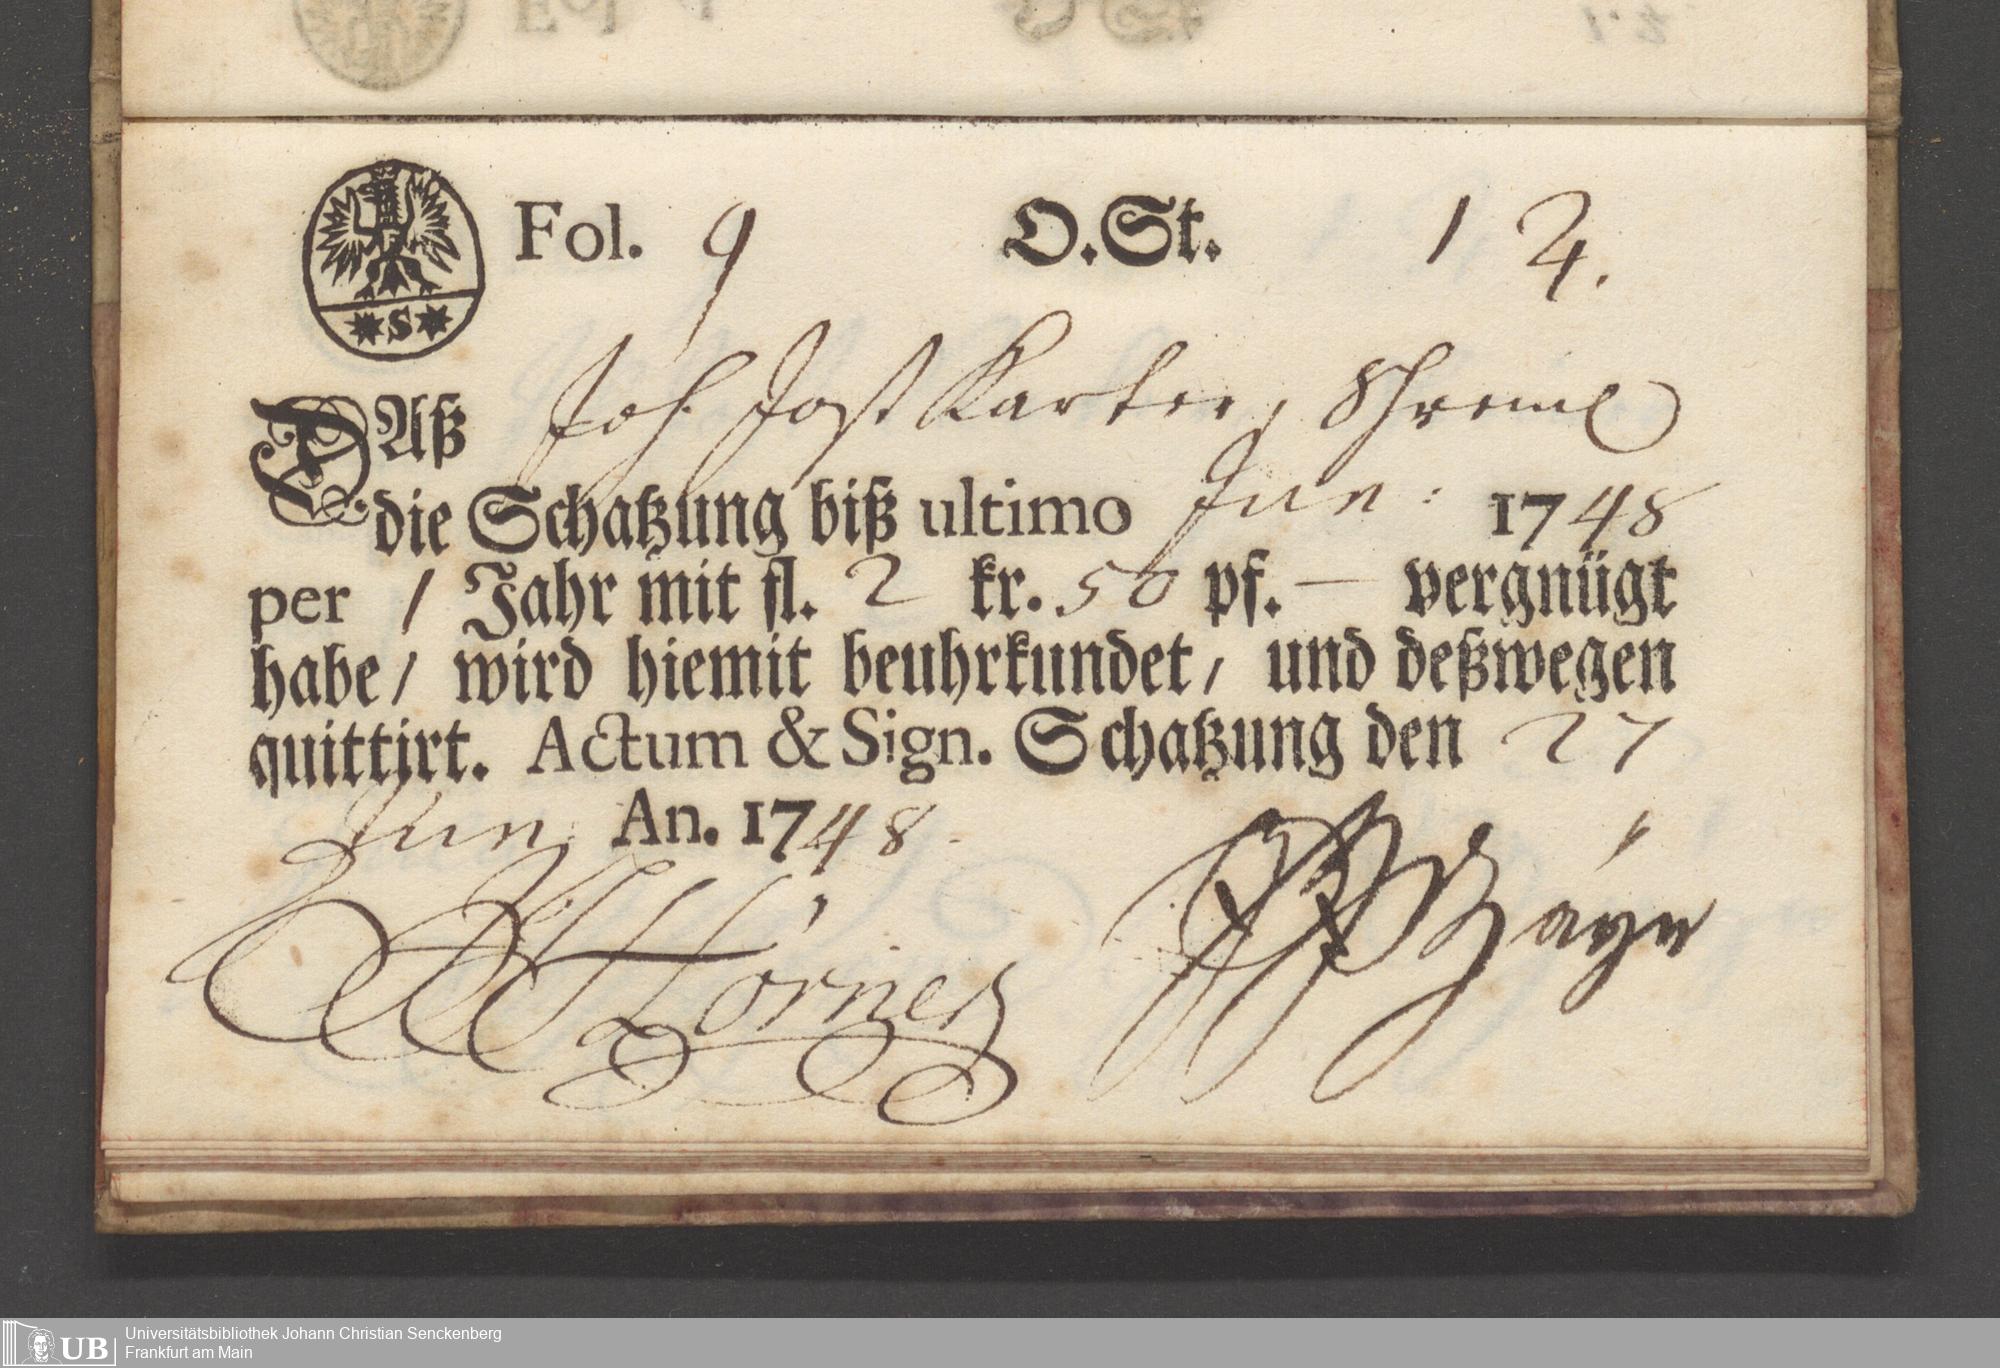 Fol. 9 O.St. 1 2/4.
*S*
DAß Joh. Jost Karter, Schreiner
die Schatzung biß ultimo Jun: 1748
per 1 Jahr mit fl. 2 kr. 50 pf. — vergnügt
habe/ wird hiemit beuhrkundet/ und deßwegen
quittirt. Actum & Sign. Schatzung den 27
Jun: An. 1748.
Hörner
Universitätsbibliothek Johann Christian Senckenberg
UB Frankfurt am Main